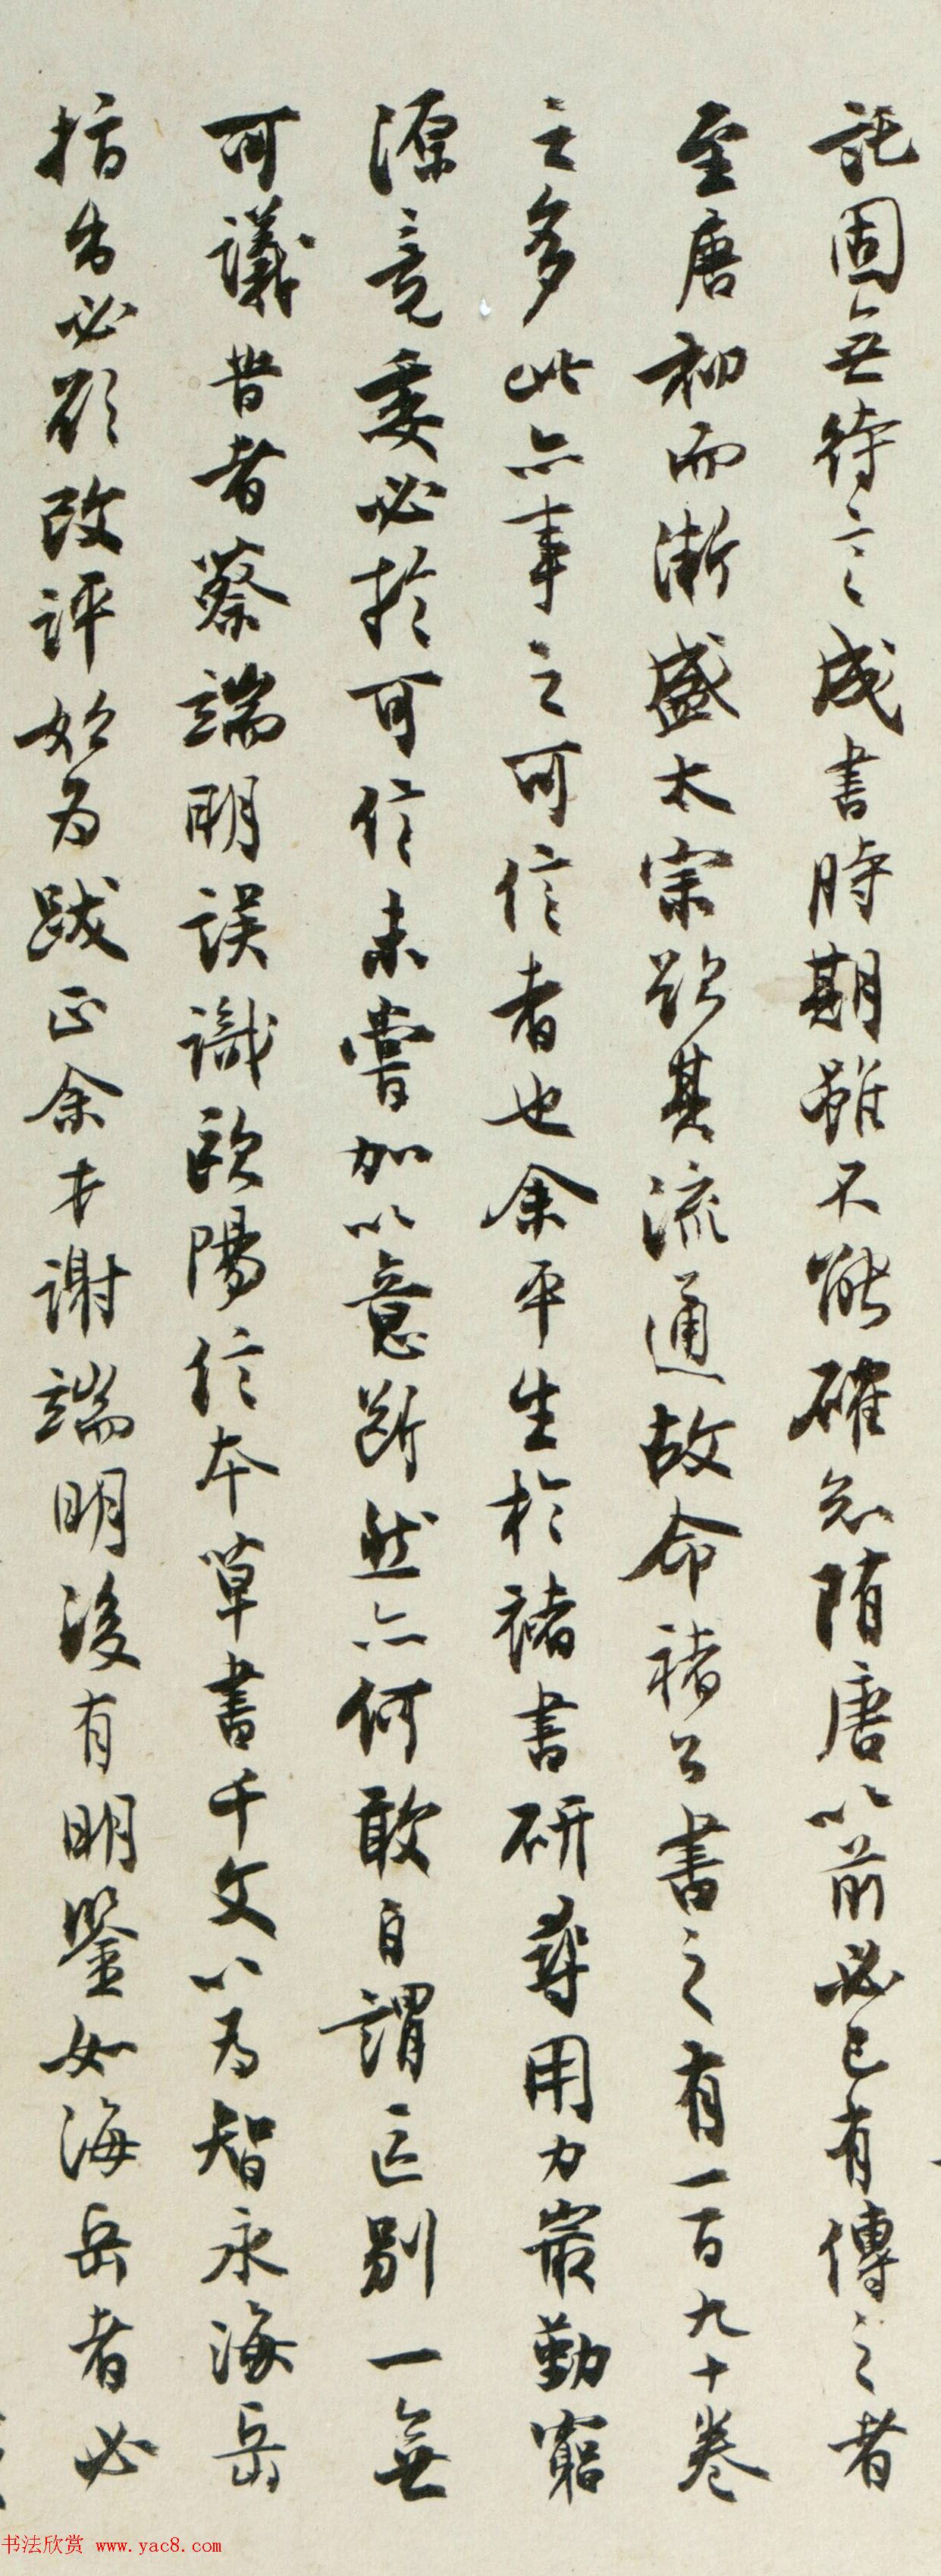 託固無待言成書時期雖不能確知隋唐以前必已有傳之者
至唐初而漸盛太宗欲其流通故命褚公書之有一百九十卷
之多此亦事之可信者也余平生於褚書研尋用力最勤窮
源竟委必於可信未嘗加以意斷然亦何敢自謂區別一無
可議昔者蔡端明誤識歐陽信本草書千文以為智永海岳
指出必欲改評始為跋正余才謝端明後有明鑒如海岳者必
书法欣赏 www.yac8.com